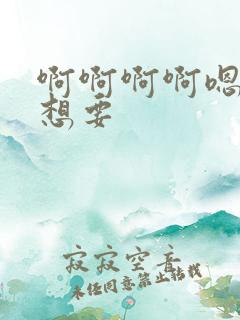 啊啊啊啊嗯
想要
寂寂空音
未经同意禁止转载